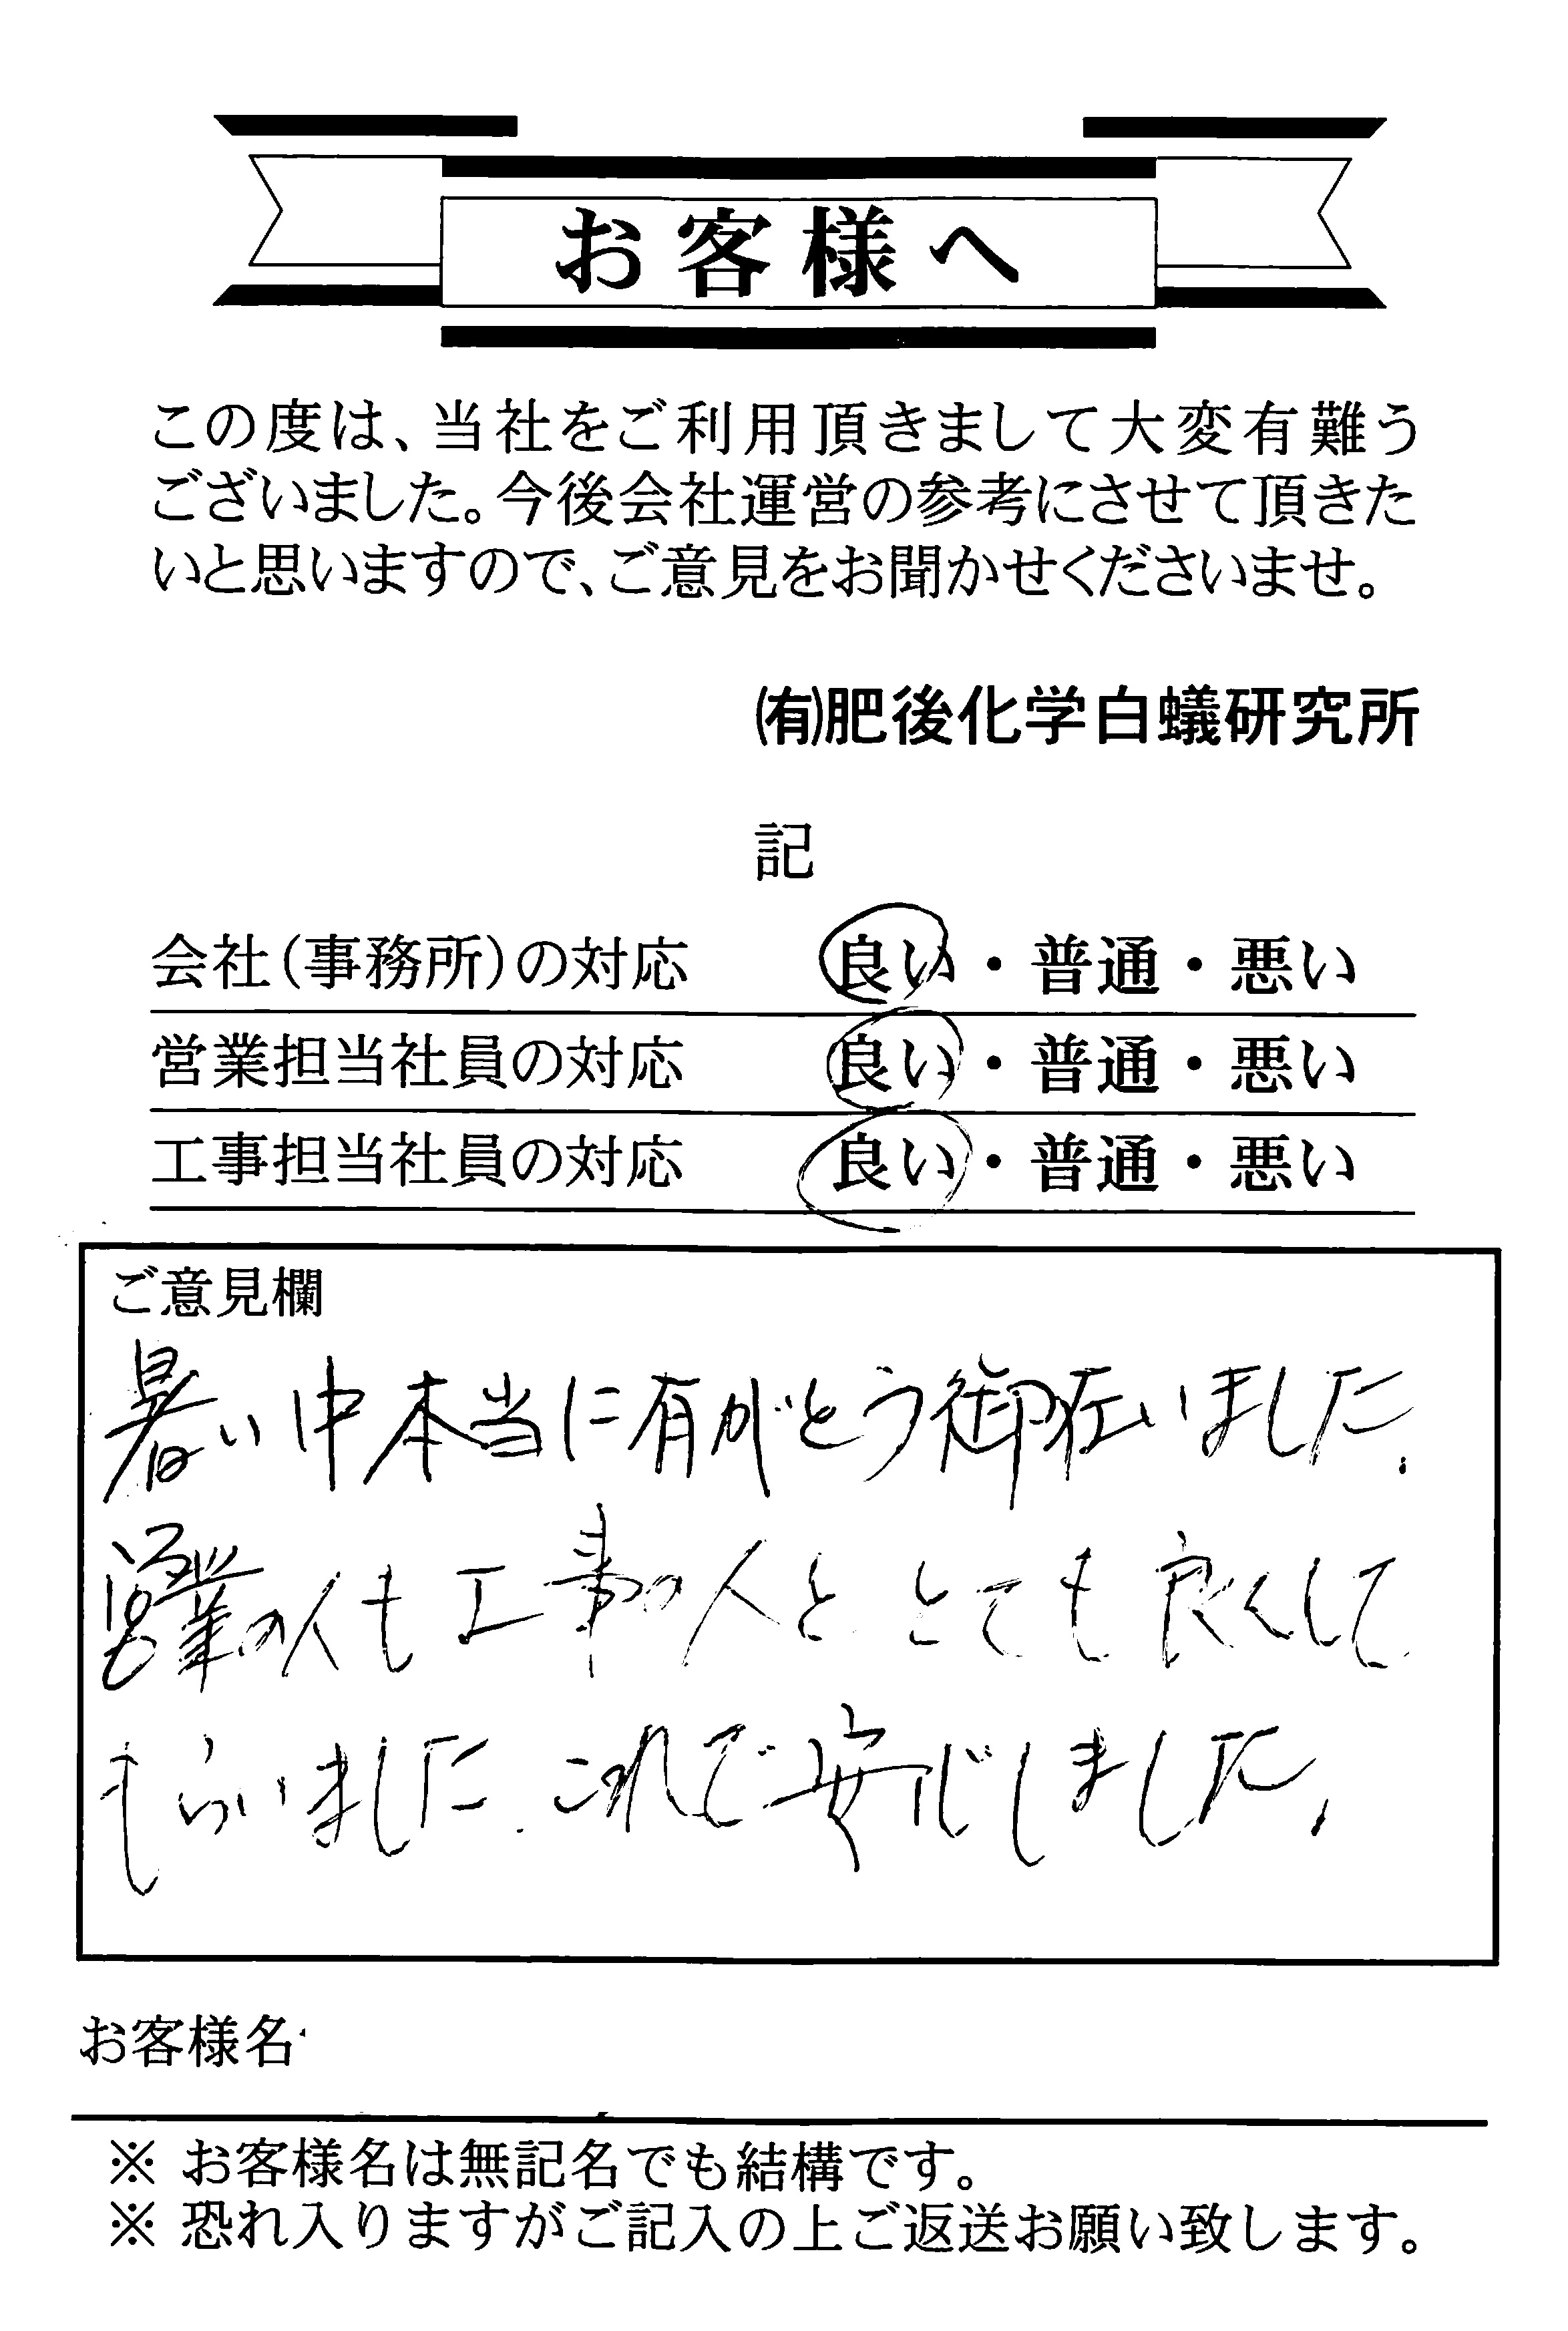 お客様へ
この度は、当社をご利用頂きまして大変有難う
ございました。今後会社運営の参考にさせて頂きた
いと思いますので、ご意見をお聞かせくださいませ。
㈲肥後化学白蟻研究所
記
会社(事務所)の対応 良い・普通・悪い
営業担当社員の対応 良い・普通・悪い
工事担当社員の対応 良い・普通・悪い
ご意見欄
暑い中本当に有がとう御在いました.
営業の人も工事の人と とても良くして
もらいました. これで安心しました.
お客様名
※ お客様名は無記名でも結構です。
※ 恐れ入りますがご記入の上ご返送お願い致します。